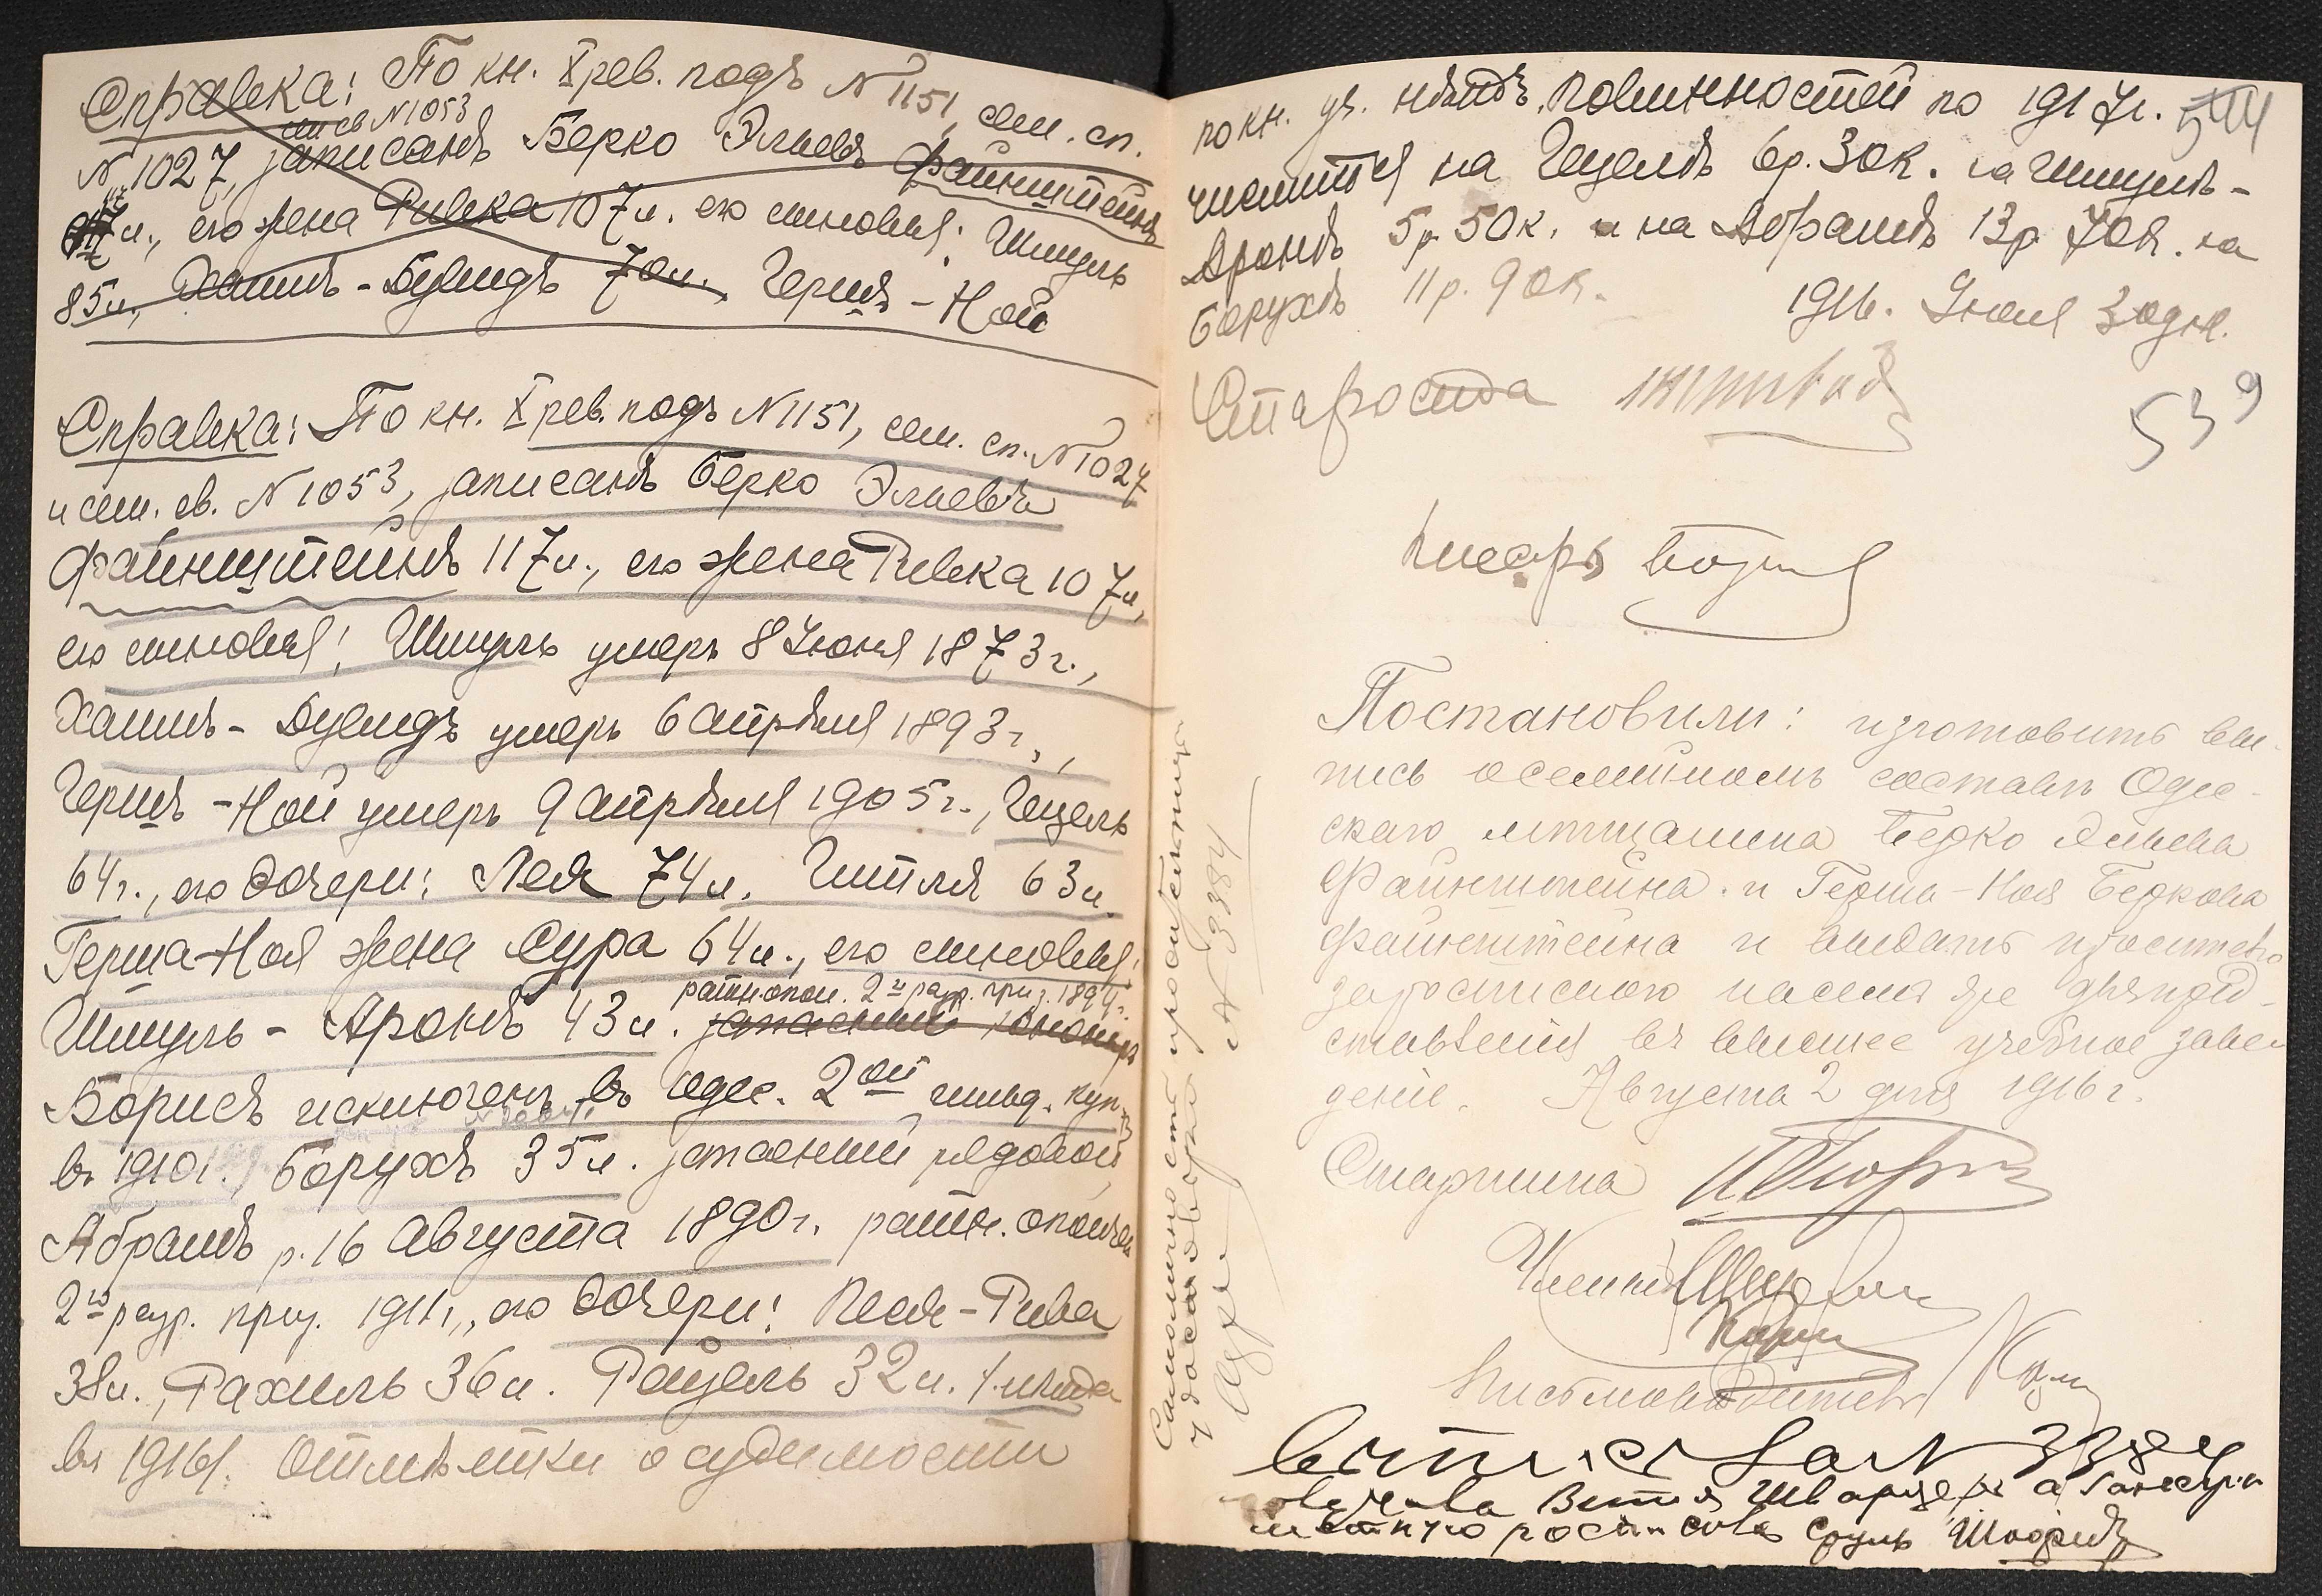 Справка: По кн. X рев. подъ N 1151, сем. сп.
сем св N 1053
N 1027, записанъ Берко Элиевъ Файнштейнъ
117 л., его жена Ривка 107 л. его сыновья: Шмуль
85 л., Хаимъ-Дувидъ 70 л., Гершъ-Ной
Справка: По кн. X рев. подъ N 1151, сем. сп. N 1027
и сем. св. N 1053, записанъ Берко Элиевъ
Файнштейнъ 117 л., его жена Ривка 107 л.,
его сыновья: Шмуль умеръ 8 Июня 1873 г.,
Хаимъ-Дувидъ умеръ 6 апрѣля 1893 г.,
Гершъ-Ной умеръ 9 апрѣля 1905 г., Гецель
64 г., его дочери: Лея 74 л. Гитля 63 л.
Герша-Ноя жена Сура 64 л., его сыновья:
ратн. опол. 2го разр. приз. 1894 г.
Шмуль-Аронъ 43 л. запасный
Борисъ исключенъ въ Одес. 2ой гильд. куп.
въ 1910 г., Борухъ 35 л. запасный рядовой,
Абрамъ р. 16 Августа 1890 г. ратн. ополчен.
2го разр. приз. 1911 г., его дочери: Песя-Рива
38 л., Рахиль 36 л. Рейзель 32 л.
въ 1916 г. Отмѣтки о судимости
по кн. уч. нѣтъ. Повинностей по 1917 г. 544
числится на Гецелѣ 6 р. 30 к. на Шмулѣ-
Аронѣ 5 р. 50 к. и на Абрамѣ 13 р. 70 к. на
Борухѣ 11 р. 90 к. 1916. Июля 30 дня.
Староста
539
Писарь
Постановили: изготовить вы-
пись о семейномъ составѣ Одес-
скаго мѣщанина Берко Эльева
Файнштейна и Герша-Ноя Беркова
Файнштейна и выдать просителю
за роспискою на семъ же для пред-
ставленія въ высшее учебное заве-
деніе. Августа 2 дня 1916 г.
Старшина
Члены
Письмоводитель
Самоличность просительницы
удостовѣряю N 3384
Выпись за N 3384
получила
росписался Сруль